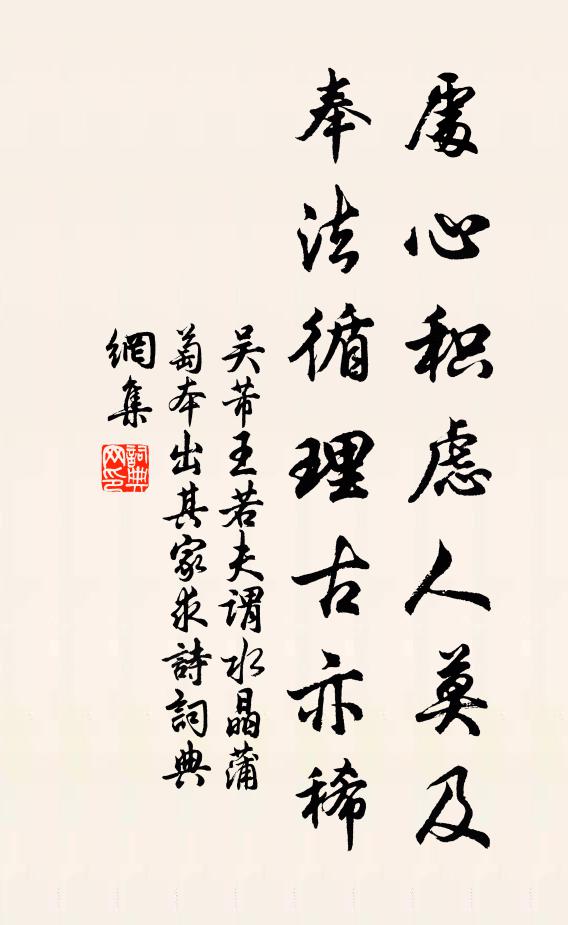 處心积慮人莫及
奉法循理古亦稀
吴芾王若夫謂水晶蒲
萄本出其家求詩詞典
網集
詞典网印